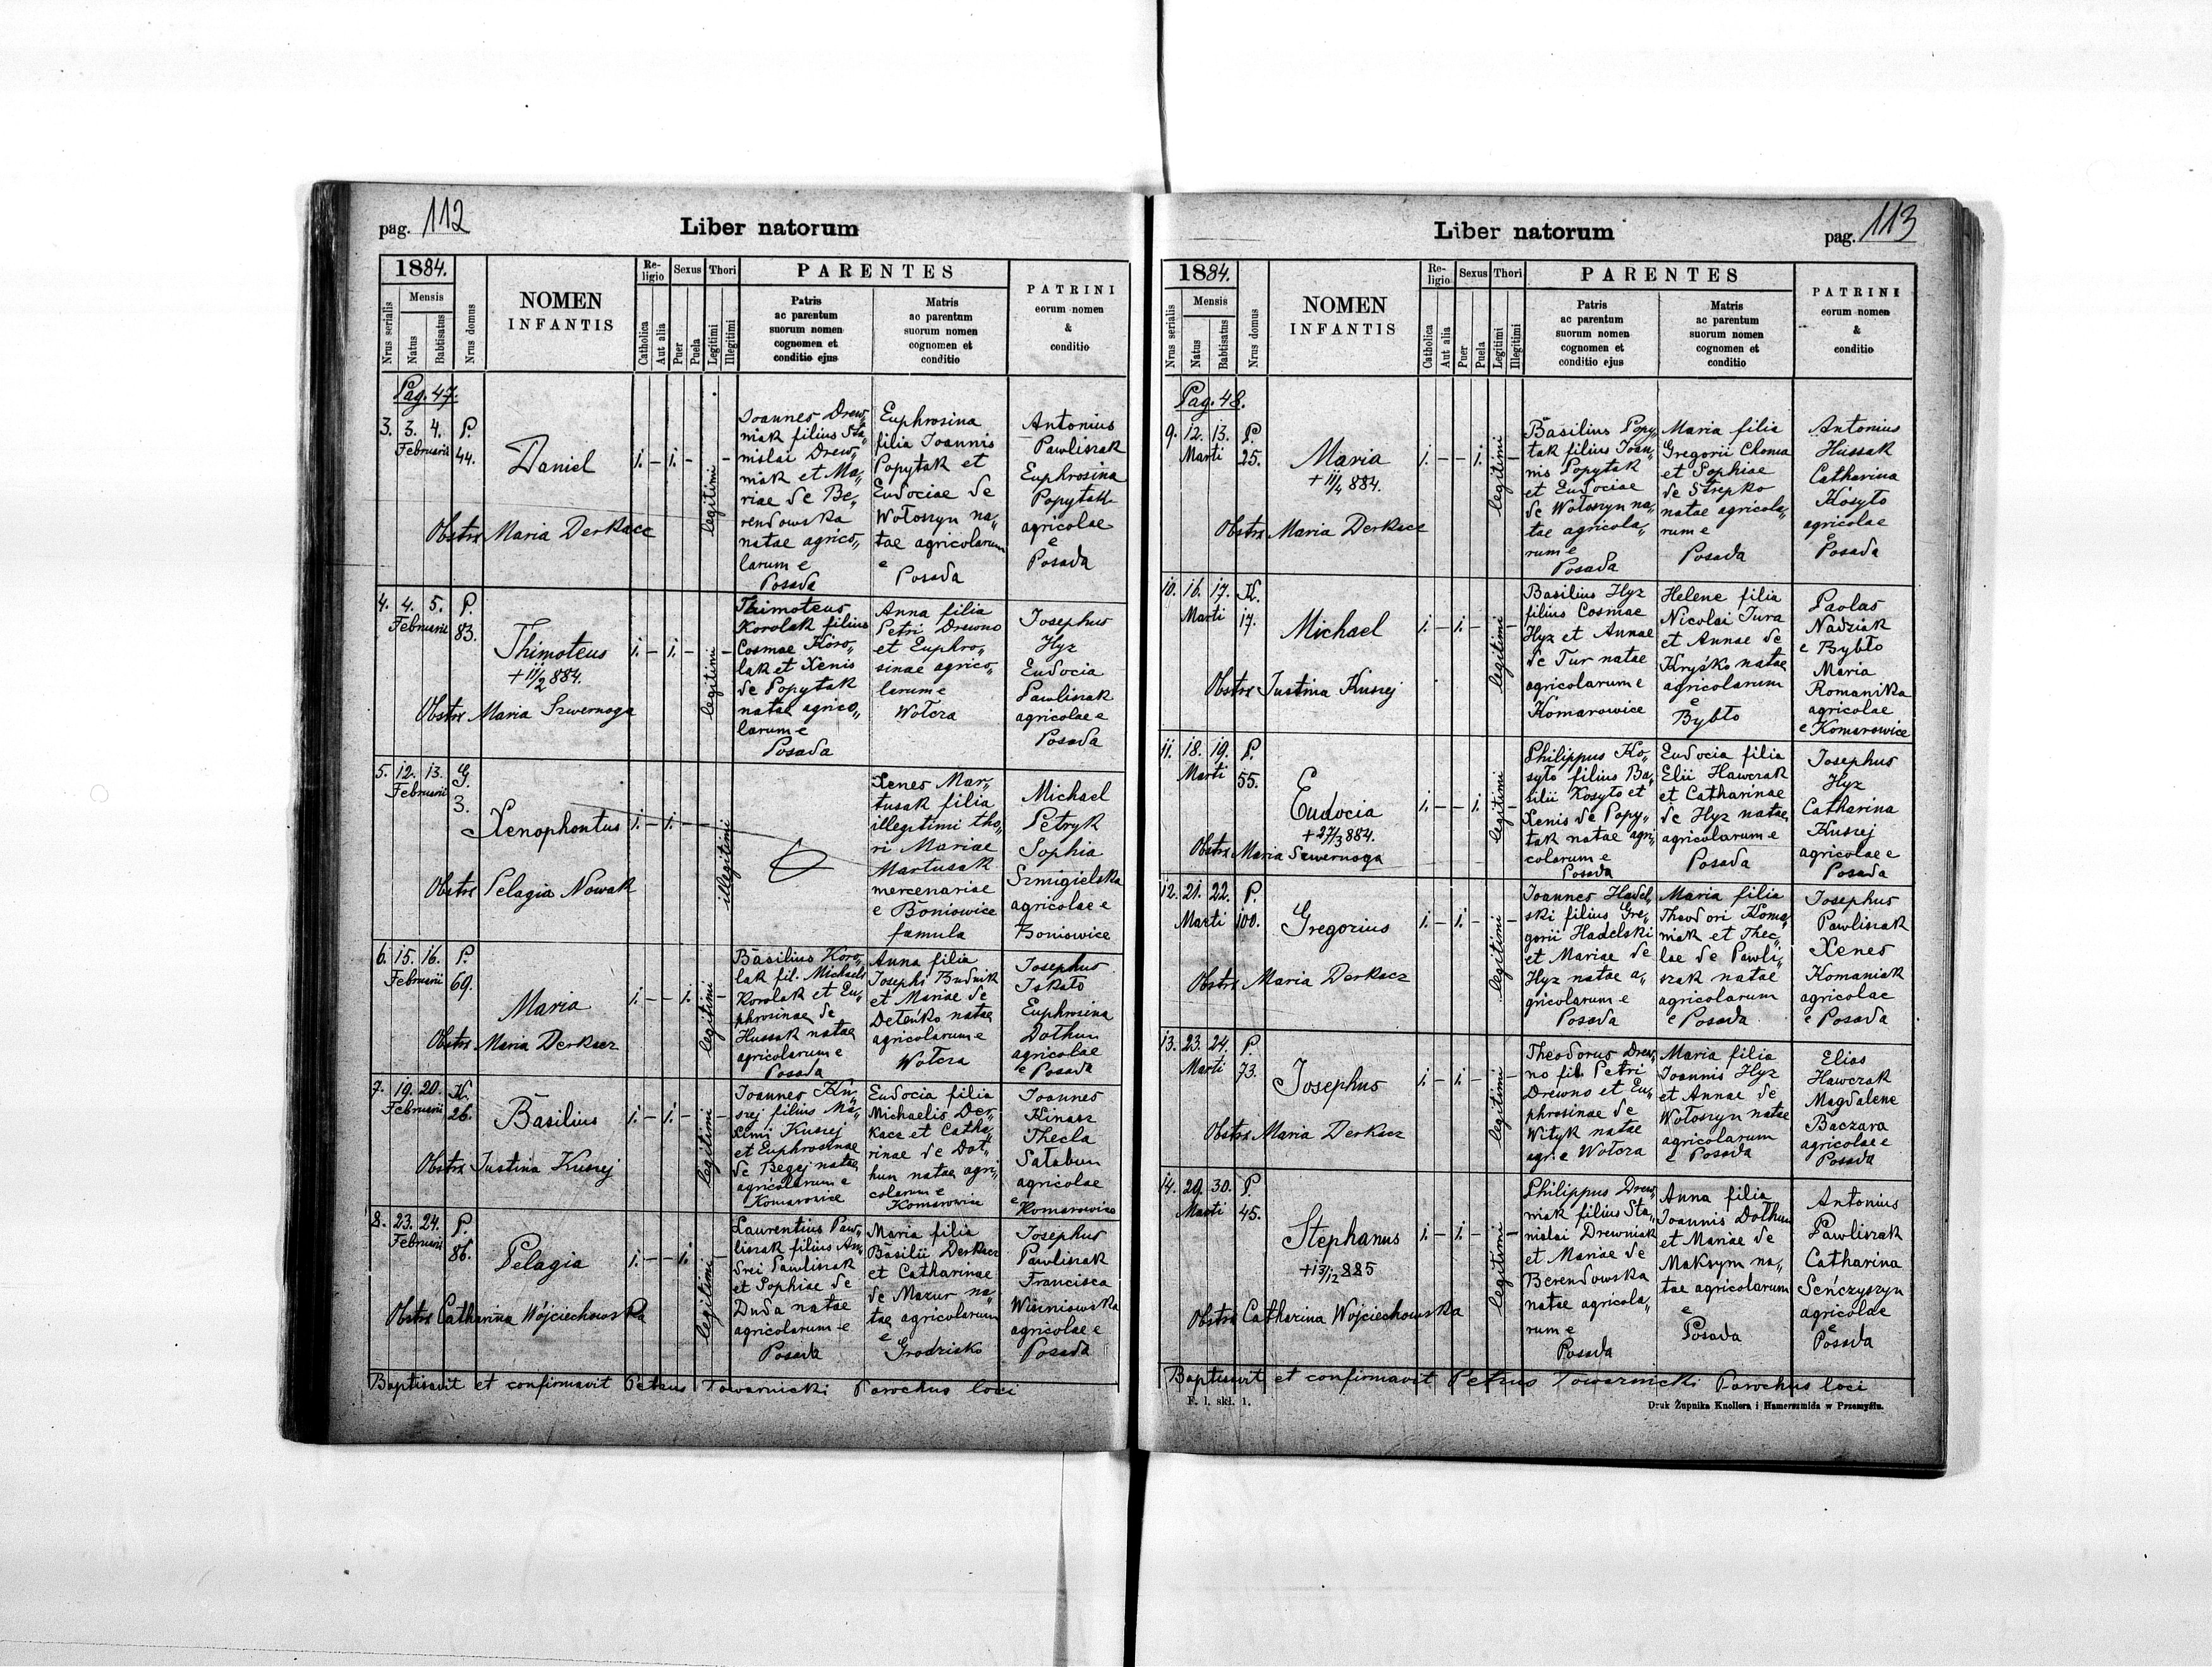 pag. 112
Liber natorum
1884.
Nrus serialis
Mensis
Natus
Babtisatus
Nrus domus
NOMEN
INFANTIS
Re-
ligio
Catholica
Aut alia
Sexus
Puer
Puela
Thori
Legitimi
Illegitimi
PARENTES
Patris
ac parentum
suorum nomen
cognomen et
conditio ejus
Matris
ac parentum
suorum nomen
cognomen et
conditio
PATRINI
eorum nomen
&
conditio
Pag. 47.
3. 3. 4. P.
Februarii 44.
Daniel
1. – 1. – –
legitimi
Obstrx Maria Derkacz
Joannes Drew„
niak filius Sta„
nislai Drew„
niak et Ma„
riae de Be„
rendowska
natae agrico„
larum e
Posada
Euphrosina
filia Joannis
Popytak et
Eudociae de
Wołoszyn na„
tae agricolarum
e
Posada
Antonius
Pawliszak
Euphrosina
Popytak
agricolae
e
Posada
4. 4. 5. P.
Februarii 83.
Thimoteus
+ 11/2 884.
1. – 1. – –
legitimi
Obstrx Maria Szwernoga
Thimoteus
Korolak filius
Cosmae Koro„
lak et Xenis
de Popytak
natae agrico„
larum e
Posada
Anna filia
Petri Drewno
et Euphro„
sinae agrico„
larum e
Wołcza
Josephus
Hyz
Eudocia
Pawliszak
agricolae e
Posada
5. 12. 13. G.
Februarii 3.
Xenophontus
1. – 1. –
illegitimi
Obstrx Pelagia Nowak
Xenes Mar„
tusak filia
illegitimi tho„
ri Mariae
Martusak
mercenariae
e Boniowice
famula
Michael
Petryk
Sophia
Szmigielska
agricolae e
Boniowice
6. 15. 16. P.
Februarii 69.
Maria
1. – – 1. –
legitimi
Obstrx Maria Derkacz
Basilius Koro„
lak fil. Michaelis
Korolak et Eu„
phrosinae de
Hussak natae
agricolarum e
Posada
Anna filia
Josephi Budnik
et Mariae de
Deteńko natae
agricolarum e
Wołcza
Josephus
Iskało
Euphrosina
Dołhun
agricolae
e Posada
7. 19. 20. K.
Februarii 26.
Basilius
1. – 1. – –
legitimi
Obstrx Justina Kuszej
Joannes Ku„
szej filius Ma„
ximi Kuszej
et Euphrosinae
de Begej natae
agricolarum e
Komarowice
Eudocia filia
Michaelis Der„
kacz et Catha„
rinae de Doł„
hun natae agri„
colarum e
Komarowice
Joannes
Kinasz
Thecla
Sałabun
agricolae
e
Komarowice
8. 23. 24. P.
Februarii 86.
Pelagia
1. – – 1. –
legitimi
Obstrx Catharina Wójciechowska
Laurentius Paw„
liszak filius An„
drei Pawliszak
et Sophiae de
Duda natae
agricolarum e
Posada
Maria filia
Basilii Derkacz
et Catharinae
de Mazur na„
tae agricolarum
e
Grodzisko
Josephus
Pawliszak
Francisca
Wisniowska
agricolae e
Posada
Baptisavit et confirmavit Petrus Towarnicki Parochus loci
Liber natorum
pag. 113
1884.
Nrus serialis
Mensis
Natus
Babtisatus
Nrus domus
NOMEN
INFANTIS
Re-
ligio
Catholica
Aut alia
Sexus
Puer
Puela
Thori
Legitimi
Illegitimi
PARENTES
Patris
ac parentum
suorum nomen
cognomen et
conditio ejus
Matris
ac parentum
suorum nomen
cognomen et
conditio
PATRINI
eorum nomen
&
conditio
Pag. 48.
9. 12. 13. P.
Marti 25.
Maria
+ 11/4 884.
1. – – 1. –
legitimi
Obstrx Maria Derkacz
Basilius Popy„
tak filius Joan„
nis Popytak
et Eudociae
de Wołoszyn na„
tae agricola„
rum e
Posada
Maria filia
Gregorii Choma
et Sophiae
de Strepko
natae agricola„
rum e
Posada
Antonius
Hussak
Catharina
Kosyło
agricolae
e
Posada
10. 16. 17. K.
Marti 17.
Michael
1. – 1. – –
legitimi
Obstrx Justina Kuszej
Basilius Hyz
filius Cosmae
Hyz et Annae
de Tur natae
agricolarum e
Komarowice
Helene filia
Nicolai Jura
et Annae de
Kryśko natae
agricolarum
e
Bybło
Paolas
Nadziak
e Bybło
Maria
Romanika
agricolae
e Komarowice
11. 18. 19. P.
Marti 55.
Eudocia
+ 27/3 884.
1. – – 1. –
legitimi
Obstrx Maria Szwernoga
Philippus Ko„
syło filius Ba„
silii Kosyło et
Xenis de Popy„
tak natae agri„
colarum e
Posada
Eudocia filia
Elii Hawczak
et Catharinae
de Hyz natae
agricolarum e
Posada
Josephus
Hyz
Catharina
Kuszej
agricolae e
Posada
12. 21. 22. P.
Marti 100.
Gregorius
1. – 1. – –
legitimi
Obstrx Maria Derkacz
Joannes Hadel„
ski filius Gre„
gorii Hadelski
et Mariae de
Hyz natae a„
gricolarum e
Posada
Maria filia
Theodori Koma„
niak et Thec„
lae de Pawli„
szak natae
agricolarum
e Posada
Josephus
Pawliszak
Xenes
Komaniak
agricolae
e Posada
13. 23. 24. P.
Marti 73.
Josephus
1. – 1. – –
legitimi
Obstrx Maria Derkacz
Theodorus Drew„
no fil. Petri
Drewno et Eu„
phrosinae de
Wityk natae
agr. e Wołcza
Maria filia
Joannis Hyz
et Annae de
Wołoszyn natae
agricolarum
e Posada
Elias
Hawczak
Magdalene
Baczara
agricolae e
Posada
14. 29. 30. P.
Marti 45.
Stephanus
+ 13/12 885
1. – 1. – –
legitimi
Obstrx Catharina Wojciechowska
Philippus Drew„
niak filius Sta„
nislai Drewniak
et Mariae de
Berendowska
natae agricola„
rum e
Posada
Anna filia
Joannis Dołhun
et Mariae de
Maksym na„
tae agricolarum
e
Posada
Antonius
Pawliszak
Catharina
Seńczyszyn
agricolae
e
Posada
Baptisavit et confirmavit Petrus Towarnicki Parochus loci
F. 1. skł. 1.
Druk Żupnika Knollera i Hamerszmida w Przemyślu.